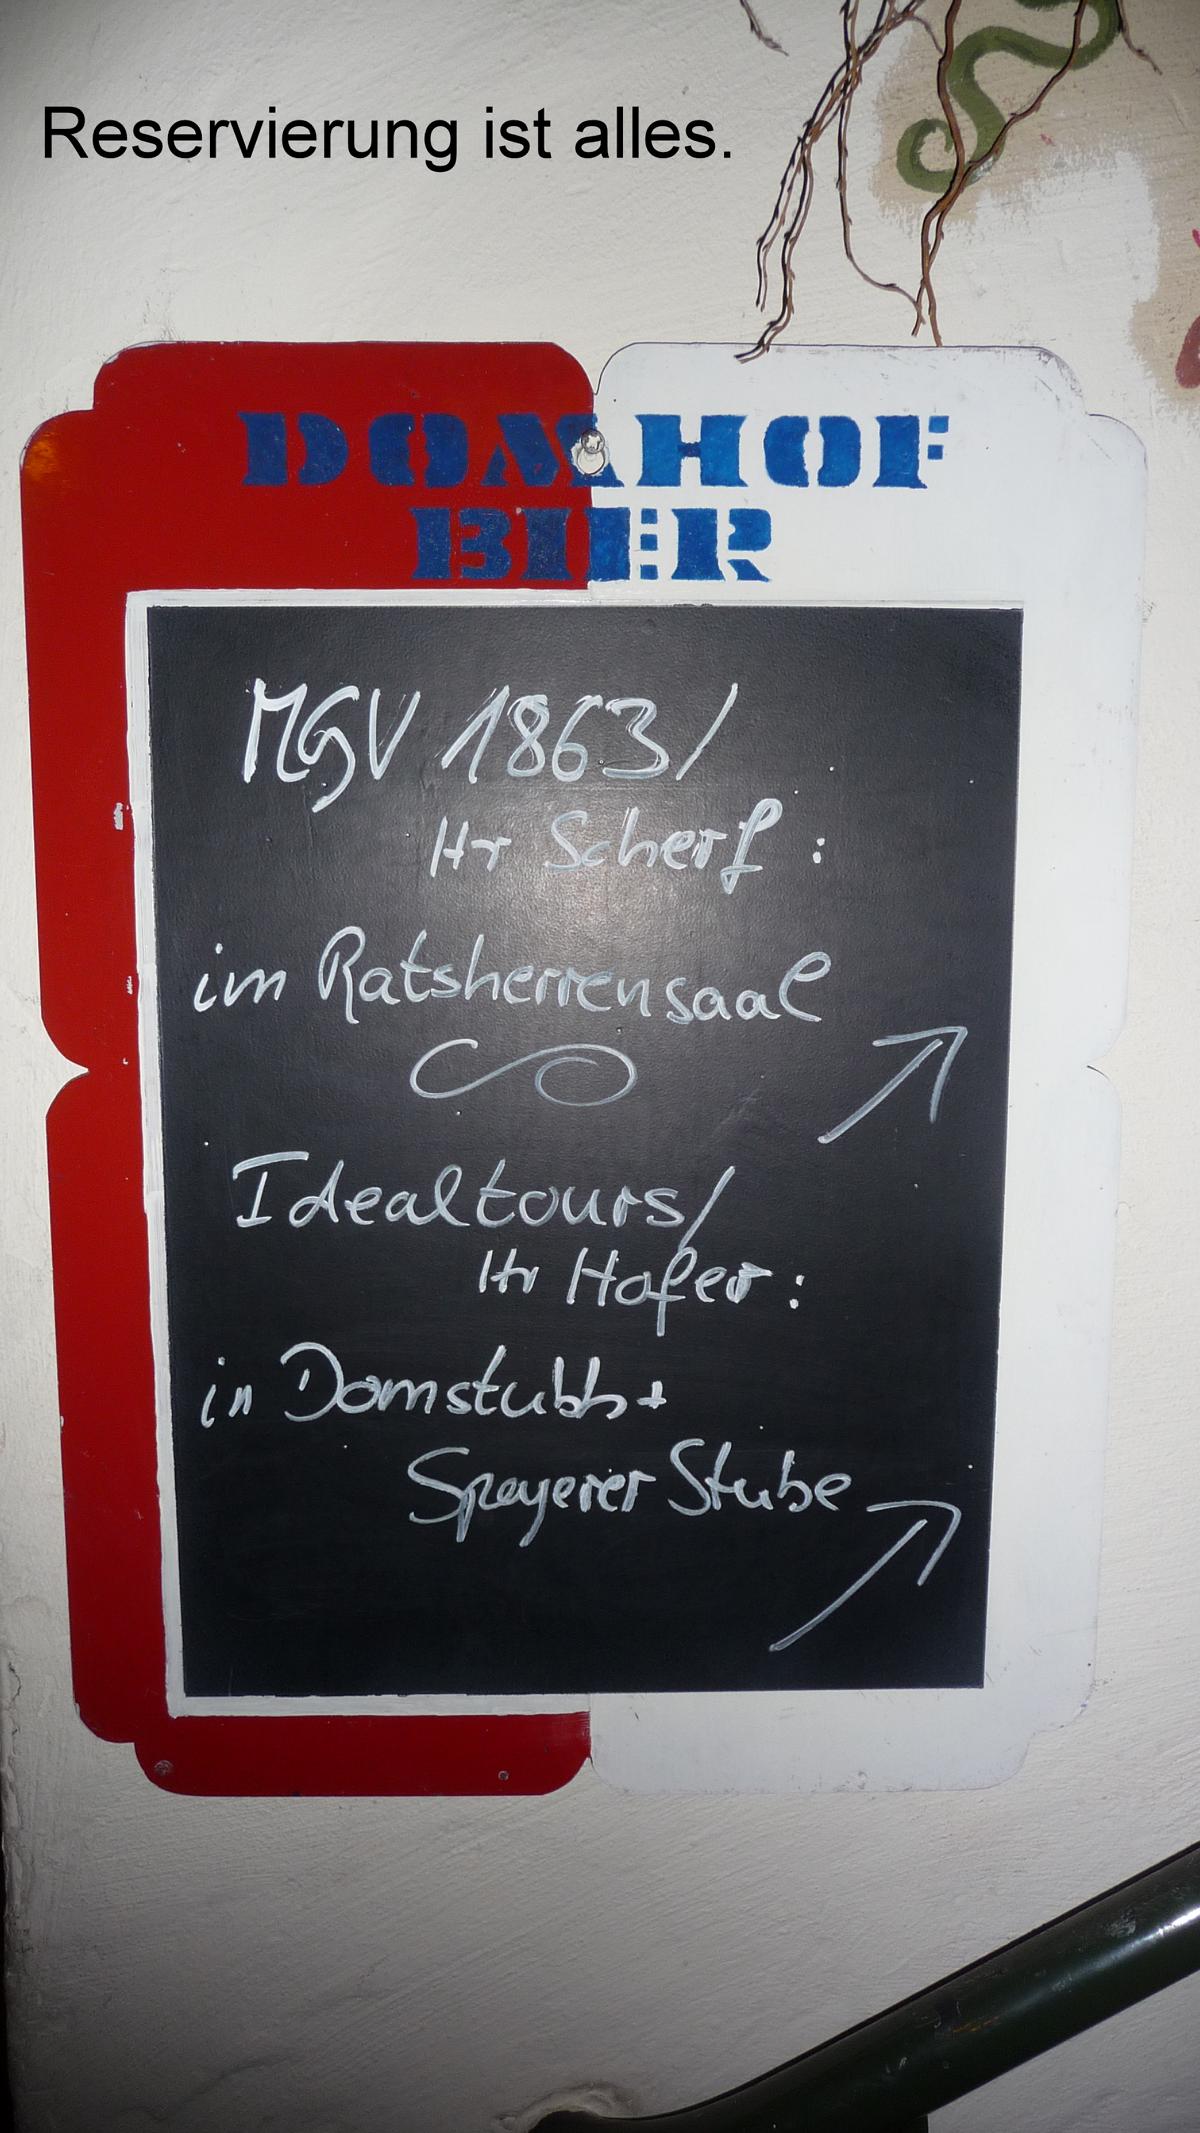 Reservierung ist alles.
DOMHOF
BIER
MGV 1863/
Hr Scherf :
im Ratsherrensaal
Idealtours/
Hr Hofer :
in Domstubb +
Speyerer Stube